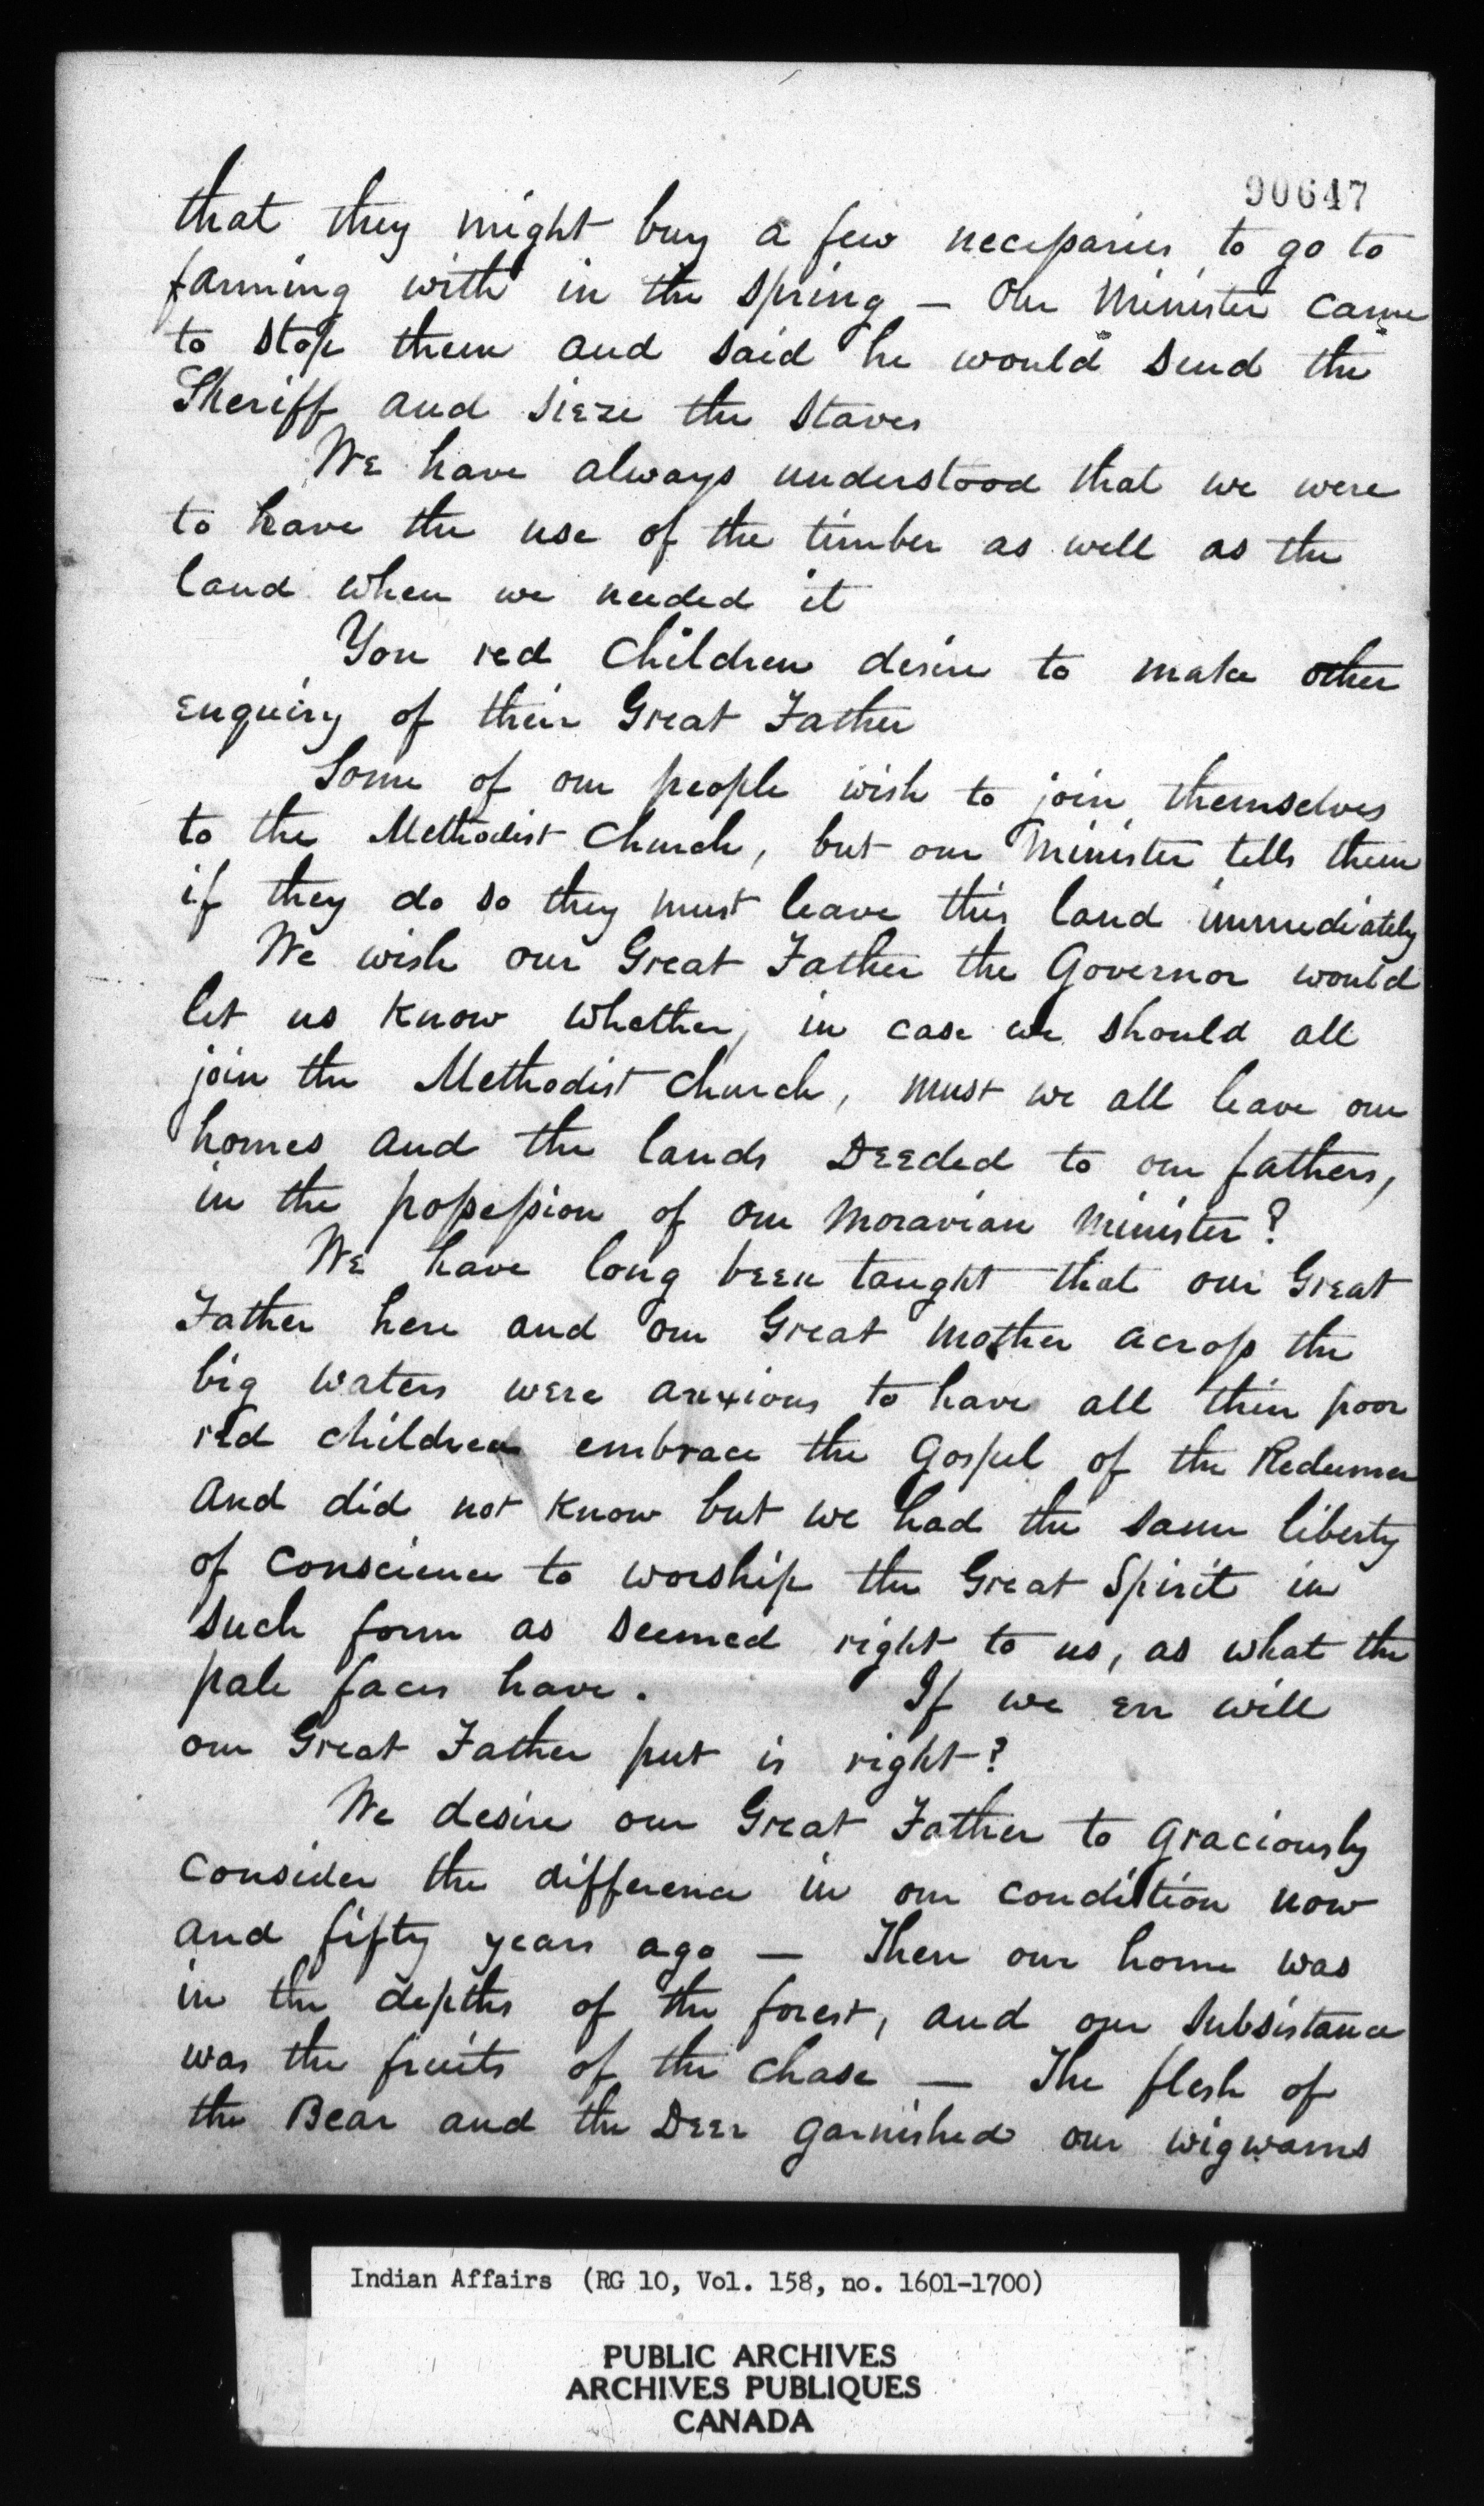 90647
that they might buy a few necessaries to go to
farming with in the spring — Our Minister came
to stop them and said he would send the
Sheriff and sieze the staves
We have always understood that we were
to have the use of the timber as well as the
land when we needed it
You red children desire to make other
enquiry of their Great Father
Some of our people wish to join themselves
to the Methodist Church, but our Minister tells them
if they do so they must leave this land immediately
We wish our Great Father the Governor would
let us know whether, in case we should all
join the Methodist Church, must we all leave our
homes and the lands Deeded to our fathers,
in the possession of our Moravian Minister?
We have long been taught that our Great
Father here and our Great Mother across the
big waters were anxious to have all their poor
red children embrace the Gospel of the Redeemer
and did not know but we had the same liberty
of conscience to worship the Great Spirit in
such form as seemed right to us, as what the
pale faces have. If we err will
our Great Father put is right?
We desire our Great Father to graciously
consider the difference in our condition now
and fifty years ago — Then our home was
in the depths of the forest, and our subsistance
was the fruits of the chase — The flesh of
the Bear and the Deer garnished our wigwams
Indian Affairs (RG 10, Vol. 158, no. 1601-1700)
PUBLIC ARCHIVES
ARCHIVES PUBLIQUES
CANADA